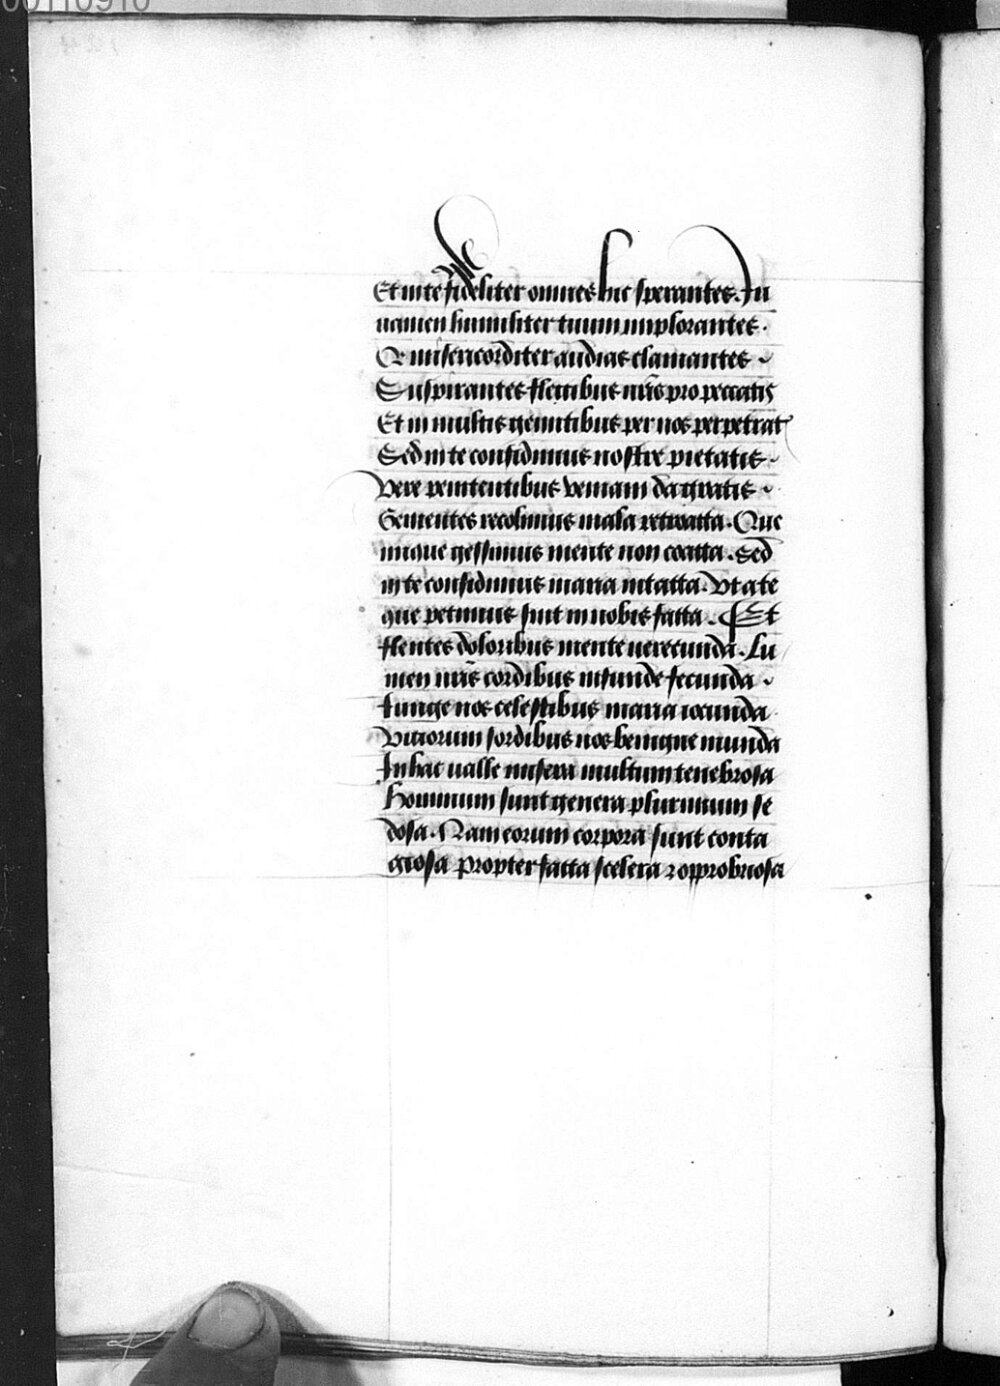 00110910
Et in te fideliter omnes hic sperantes. Tu
namen humiliter tuum implorantes.
O misericorditer audias clamantes
Suspirantes fletibus nr̄is pro peccatis
Et in multis gemitibus per nos perpetrat
Sed in te confidimus nostre pietatis
Vere penitentibus veniam da gratis
Gementes recolimus mala retroacta. Que
inique gessimus mente non coacta. Sed
in te confidimus maria intacta. Vt a te
que petimus sint in nobis facta. Et
flentes doloribus mente uerecunda. Lu
men nr̄is cordibus infunde fecunda
Iunge nos celestibus maria iocunda
Viciorum sordibus nos benigne munda
In hac ualle misera multum tenebrosa
Hominum sunt genera plurimum se
dosa. Nam eorum corpora sunt conta
giosa propter facta scelera ⁊ opprobriosa